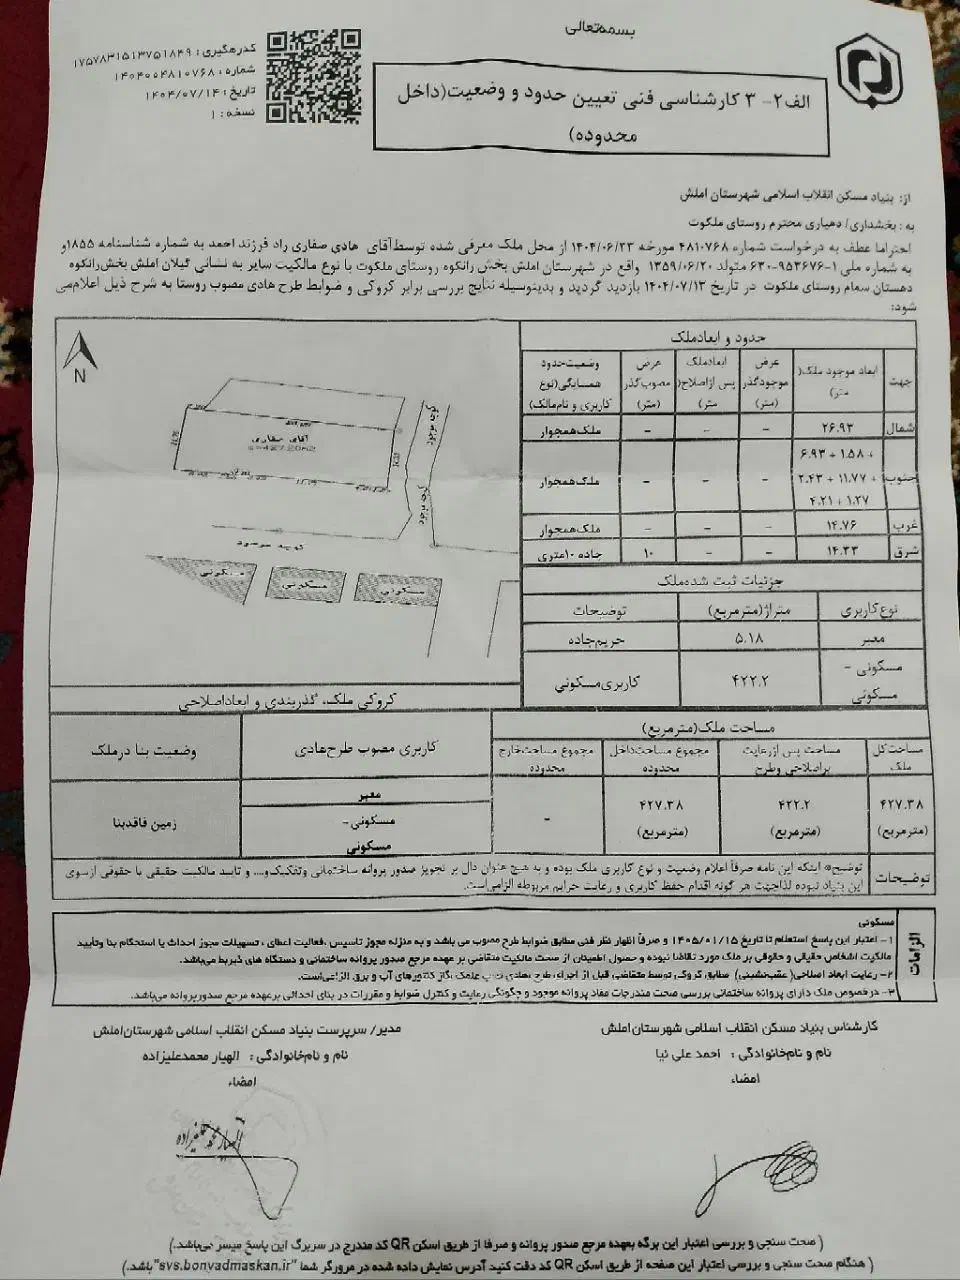 بسمه‌تعالی
کدرهگیری: ۱۷۵۷۸۳۱۵۱۳۷۵۱۸۴۹
شماره: ۱۴۰۴۰۰۴۸۱۰۷۶۸
تاریخ: ۱۴۰۴/۰۷/۱۴
نسخه: ۱
الف۲- ۳ کارشناسی فنی تعیین حدود و وضعیت(داخل
محدوده)
از: بنیاد مسکن انقلاب اسلامی شهرستان املش
به: بخشداری/ دهیاری محترم روستای ملکوت
احتراما عطف به درخواست شماره ۴۸۱۰۷۶۸ مورخه ۱۴۰۴/۰۶/۲۳ از محل ملک معرفی شده توسط‌آقای هادی صفاری راد فرزند احمد به شماره شناسنامه ۱۸۵۵و
به شماره ملی ۱-۹۵۳۶۷۶-۶۳۰ متولد ۱۳۵۹/۰۶/۲۰ واقع در شهرستان املش بخش رانکوه روستای ملکوت با نوع مالکیت سایر به نشانی گیلان املش بخش‌رانکوه
دهستان سمام روستای ملکوت در تاریخ ۱۴۰۴/۰۷/۱۳ بازدید گردید و بدینوسیله نتایج بررسی برابر کروکی و ضوابط طرح هادی مصوب روستا به شرح ذیل اعلام‌می
شود:
حدود و ابعادملک
جهت
ابعاد موجود ملک(
متر)
عرض
موجودگذر
(متر)
ابعادملک
پس ازاصلاح(
متر)
عرض
مصوب‌گذر
(متر)
وضعیت‌حدود
همسایگی(نوع
کاربری و نام‌مالک)
شمال ۲۶.۹۳ - - - ملک‌همجوار
جنوب ۶.۹۳ + ۱.۵۸ +
۲.۴۳ + ۱۱.۷۷ +
۴.۲۱ + ۱.۲۷ - - - ملک‌همجوار
غرب ۱۴.۷۶ - - - ملک‌همجوار
شرق ۱۴.۳۳ - - ۱۰ جاده ۱۰متری
N
آقای صفاری
کوچه موجود
کوچه موجود
کوچه موجود
مسکونی
مسکونی
مسکونی
کروکی ملک، گذربندی و ابعاداصلاحی
جزئیات ثبت شده‌ملک
نوع‌کاربری متراژ(مترمربع) توضیحات
معبر ۵.۱۸ حریم‌جاده
مسکونی -
مسکونی ۴۲۲.۲ کاربری‌مسکونی
مساحت ملک(مترمربع)
مساحت‌کل
ملک
مساحت پس ازرعایت
براصلاحی‌وطرح
مجموع مساحت‌داخل
محدوده
مجموع مساحت‌خارج
محدوده
کاربری مصوب طرح‌هادی
وضعیت بنا درملک
۴۲۷.۳۸
(مترمربع)
۴۲۲.۲
(مترمربع)
۴۲۷.۳۸
(مترمربع)
-
معبر
مسکونی-
مسکونی
زمین فاقدبنا
توضیحات
توضیح‌ه اینکه این نامه صرفاً اعلام وضعیت و نوع کاربری ملک بوده و به هیچ عنوان دال بر تجویز صدور پروانه ساختمانی وتفکیک‌و... و تایید مالکیت حقیقی یا حقوقی ازسوی
این بنیاد نبوده لذاجهت هر گونه اقدام حفظ کاربری و رعایت حرایم مربوطه الزامی‌است.
الزامات
مسکونی
۱- اعتبار این پاسخ استعلام تا تاریخ ۱۴۰۵/۰۱/۱۵ و صرفاً اظهار نظر فنی مطابق ضوابط طرح مصوب می باشد و به منزله مجوز تاسیس، فعالیت اعطای ، تسهیلات مجوز احداث یا استحکام بنا وتأیید
مالکیت اشخاص حقیقی و حقوقی بر ملک مورد تقاضا نبوده و حصول اطمینان از صحت مالکیت متقاضی بر عهده مرجع صدور پروانه ساختمانی و دستگاه های ذیربط می‌باشد.
۲- رعایت ابعاد اصلاحی(عقب‌نشینی) مطابق کروکی توسط متقاضی قبل از اجرای طرح هادی، گاز، کنتورهای آب و برق الزامی‌است.
۳- درخصوص ملک دارای پروانه ساختمانی بررسی صحت مندرجات مفاد پروانه موجود و چگونگی رعایت و کنترل ضوابط و مقررات در بنای احداثی برعهده مرجع صدورپروانه می‌باشد.
کارشناس بنیاد مسکن انقلاب اسلامی شهرستان‌املش
نام و نام‌خانوادگی : احمد علی نیا
امضاء
مدیر/ سرپرست بنیاد مسکن انقلاب اسلامی شهرستان‌املش
نام و نام‌خانوادگی : الهیار محمدعلیزاده
امضاء
(صحت سنجی و بررسی اعتبار این برگه بعهده مرجع صدور پروانه و صرفا از طریق اسکن QR کد مندرج در سربرگ این پاسخ میسر می‌باشد.)
(هنگام صحت سنجی و بررسی اعتبار این صفحه از طریق اسکن QR کد دقت کنید آدرس نمایش داده شده در مرورگر شما "svs.bonyadmaskan.ir"باشد.)